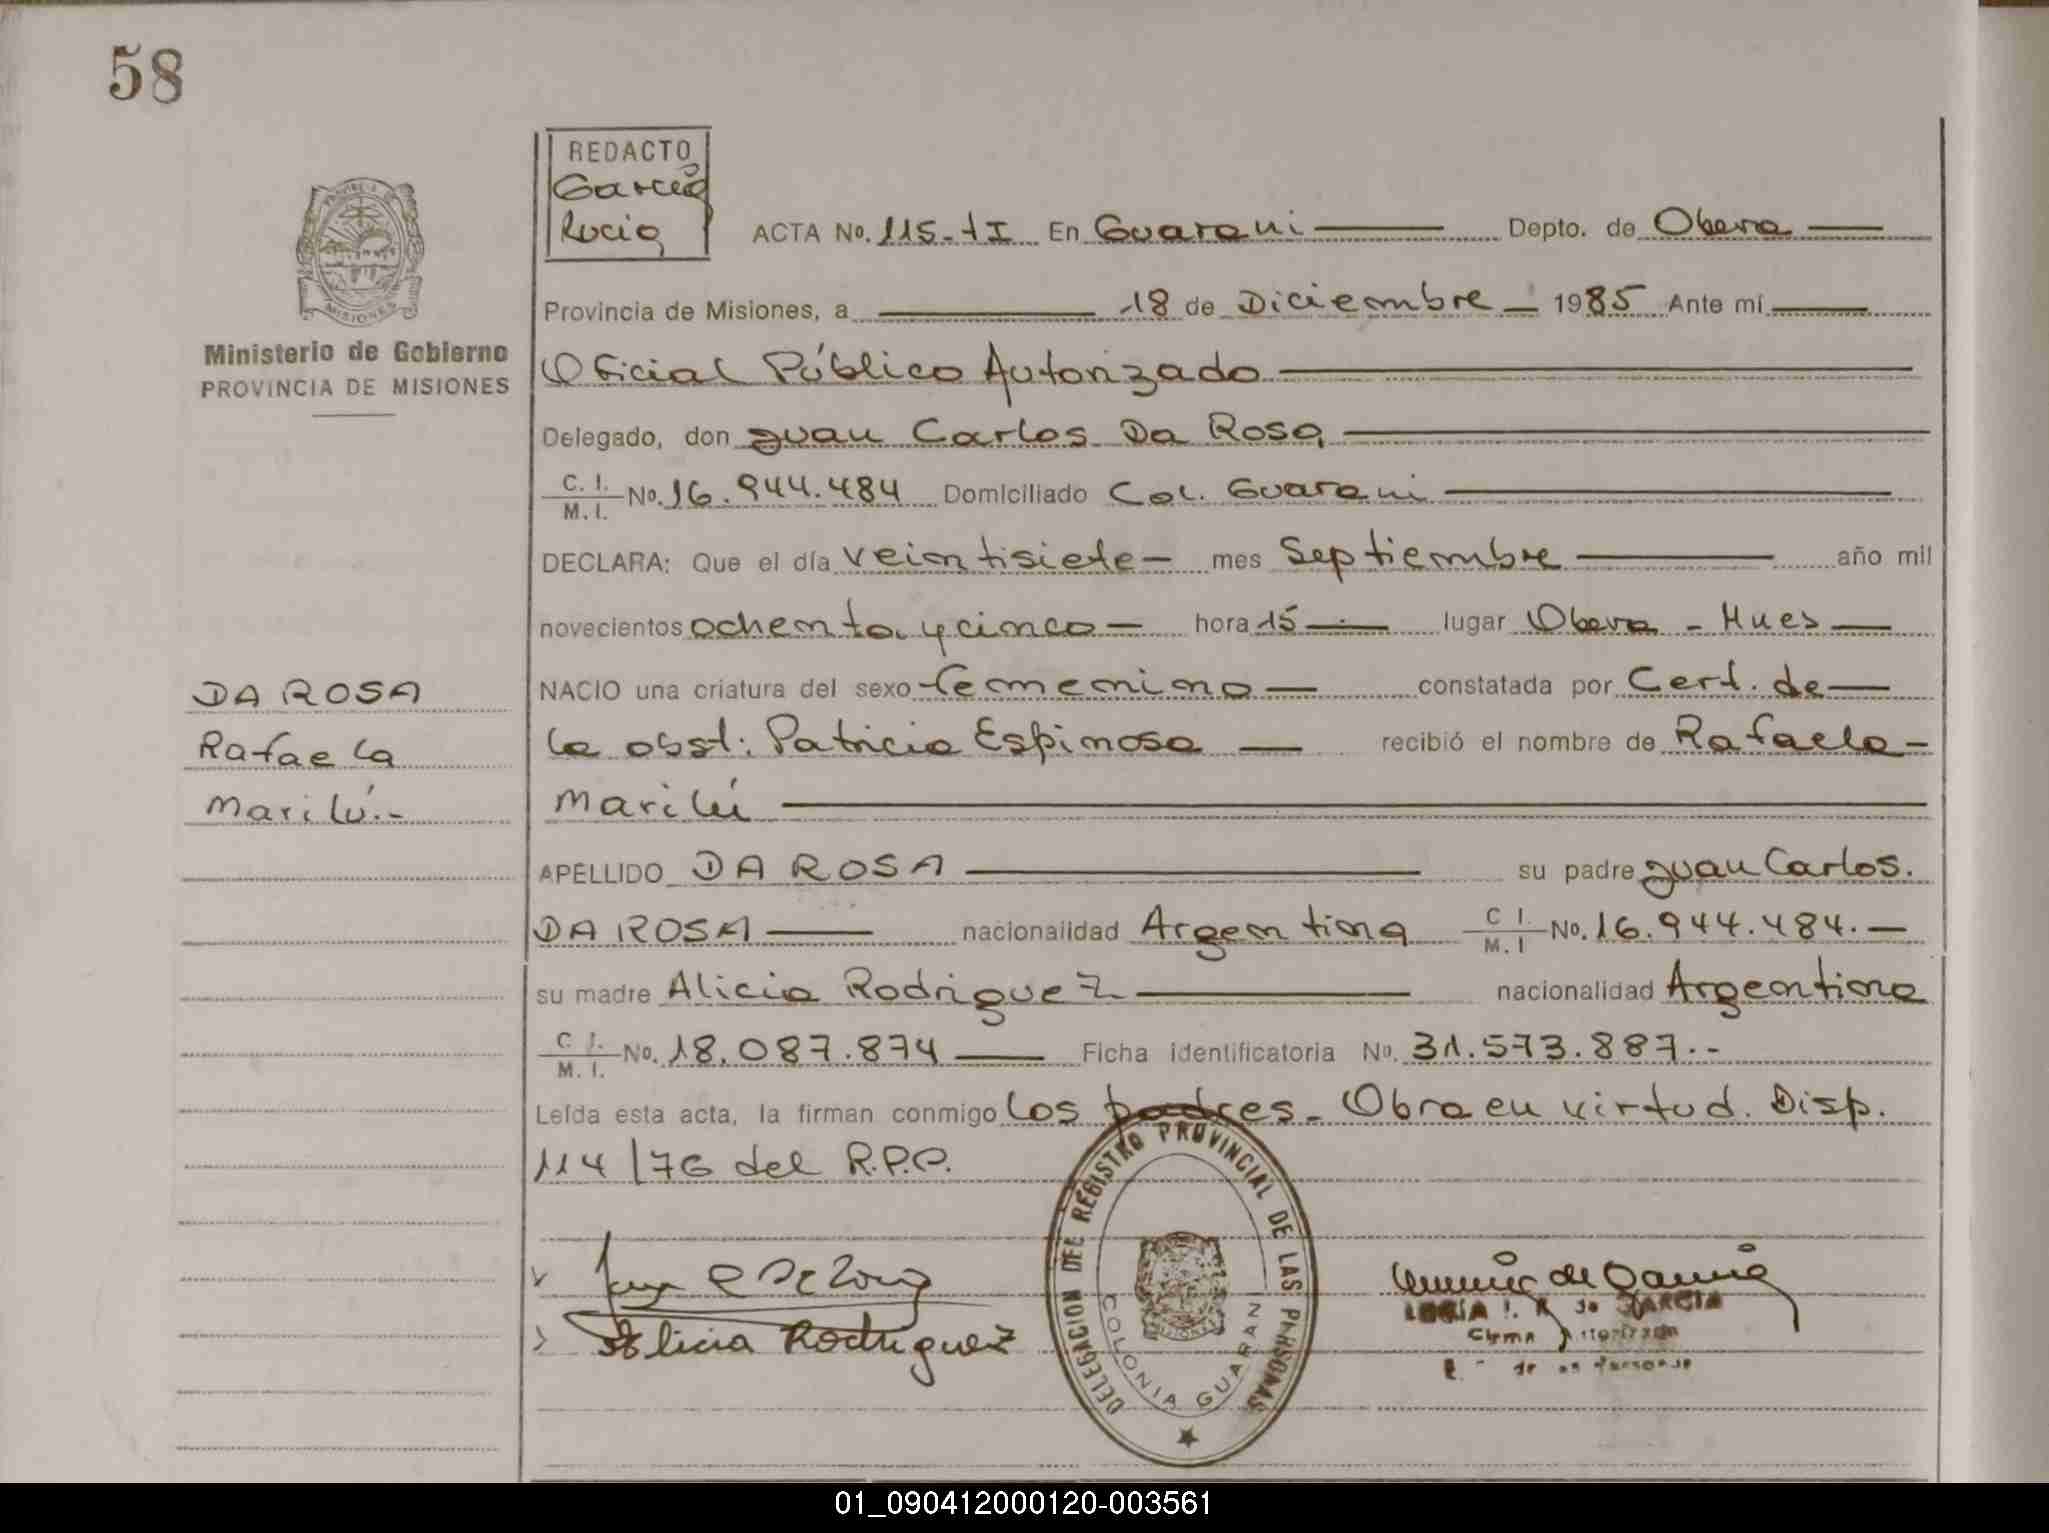 58
REDACTO
García
Lucia
ACTA No. 115-tI En Guarani Depto. de Obera
Provincia de Misiones, a 18 de Diciembre 1985 Ante mí
Oficial Público Autorizado
Delegado, don Juan Carlos Da Rosa
C. I. / M. I. No. 16.944.484 Domiciliado Col. Guarani
DECLARA: Que el día veintisiete mes Septiembre año mil
novecientos ochenta y cinco hora 15 lugar Obera - Mnes
NACIO una criatura del sexo femenino constatada por Cert. de
la obst: Patricia Espinosa recibió el nombre de Rafaela
Marilú
APELLIDO DA ROSA su padre Juan Carlos.
DA ROSA nacionalidad Argentina C I. / M. I No. 16.944.484.-
su madre Alicia Rodriguez nacionalidad Argentina
C. I. / M. I. No. 18.087.874 Ficha identificatoria No. 31.573.887.-
Leída esta acta, la firman conmigo los padres. Obra en virtud. Disp.
114/76 del R.P.P.
PROVINCIA DE
MISIONES
Ministerio de Gobierno
PROVINCIA DE MISIONES
DA ROSA
Rafaela
Marilú.-
Alicia Rodriguez
DELEGACION DEL REGISTRO PROVINCIAL DE LAS PERSONAS
COLONIA GUARANI
de GARCIA
01_090412000120-003561